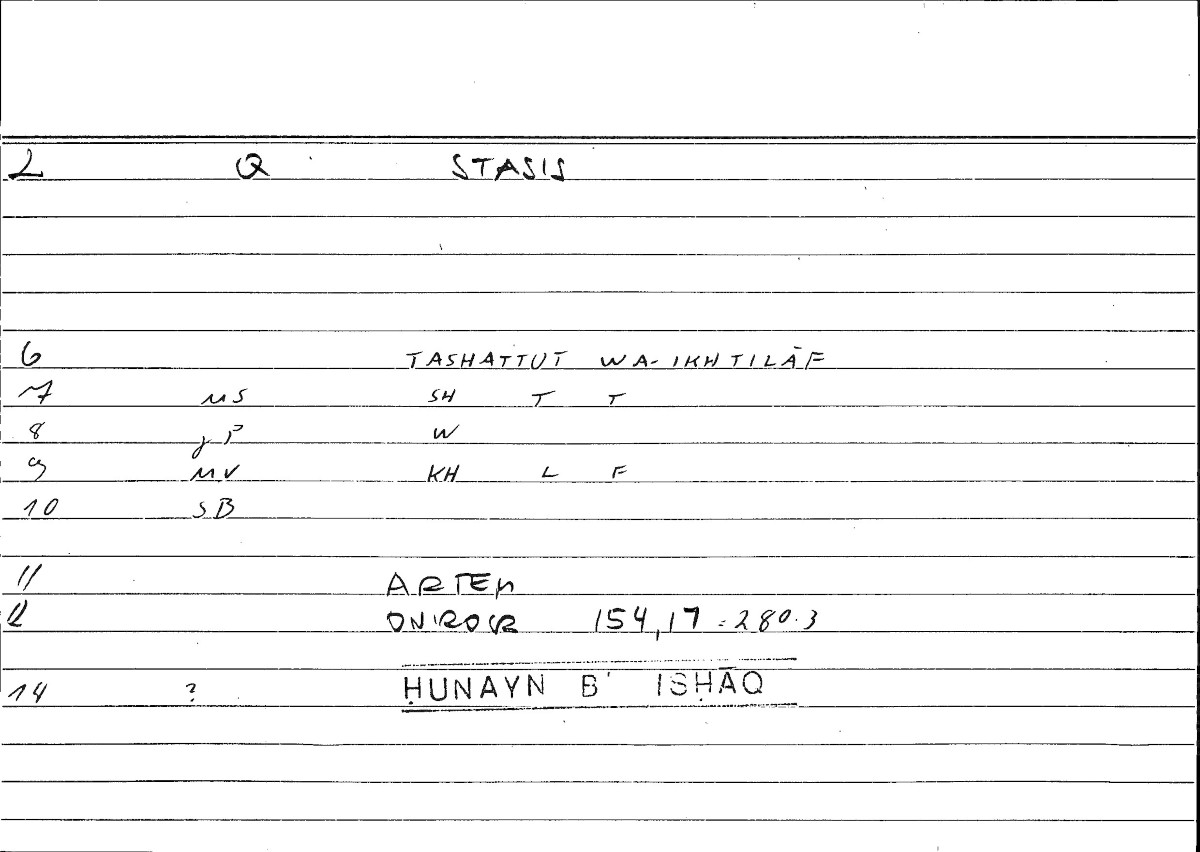 2 Q STASIS
6 TASHATTUT WA-IKHTILĀF
7 MS SH T T
8 gP W
9 MV KH L F
10 SB
11 ARTEM
12 ONIROCR 154,17 = 280.3
14 ? ḤUNAYN B' ISḤĀQ